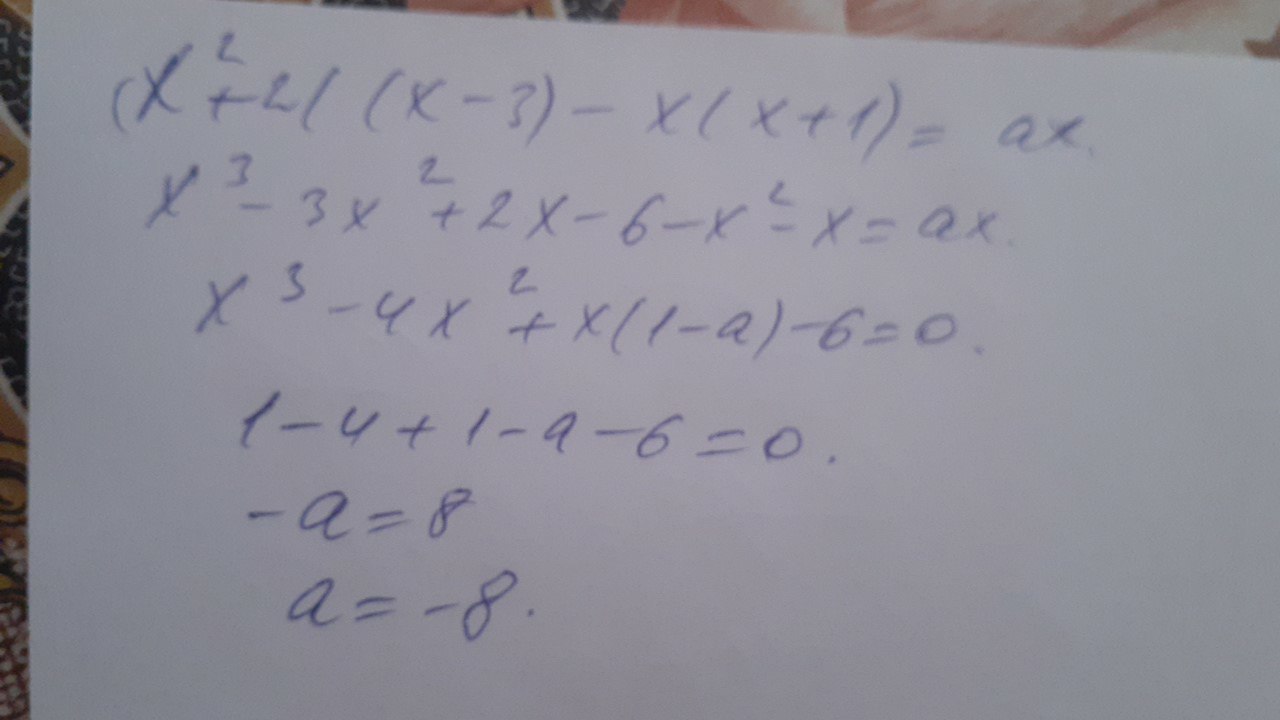 (x²+2( (x-3) - x(x+1) = ax.
x³ - 3x² + 2x - 6 - x² - x = ax.
x³ - 4x² + x(1-a) - 6 = 0.
1 - 4 + 1 - a - 6 = 0.
-a = 8
a = -8.